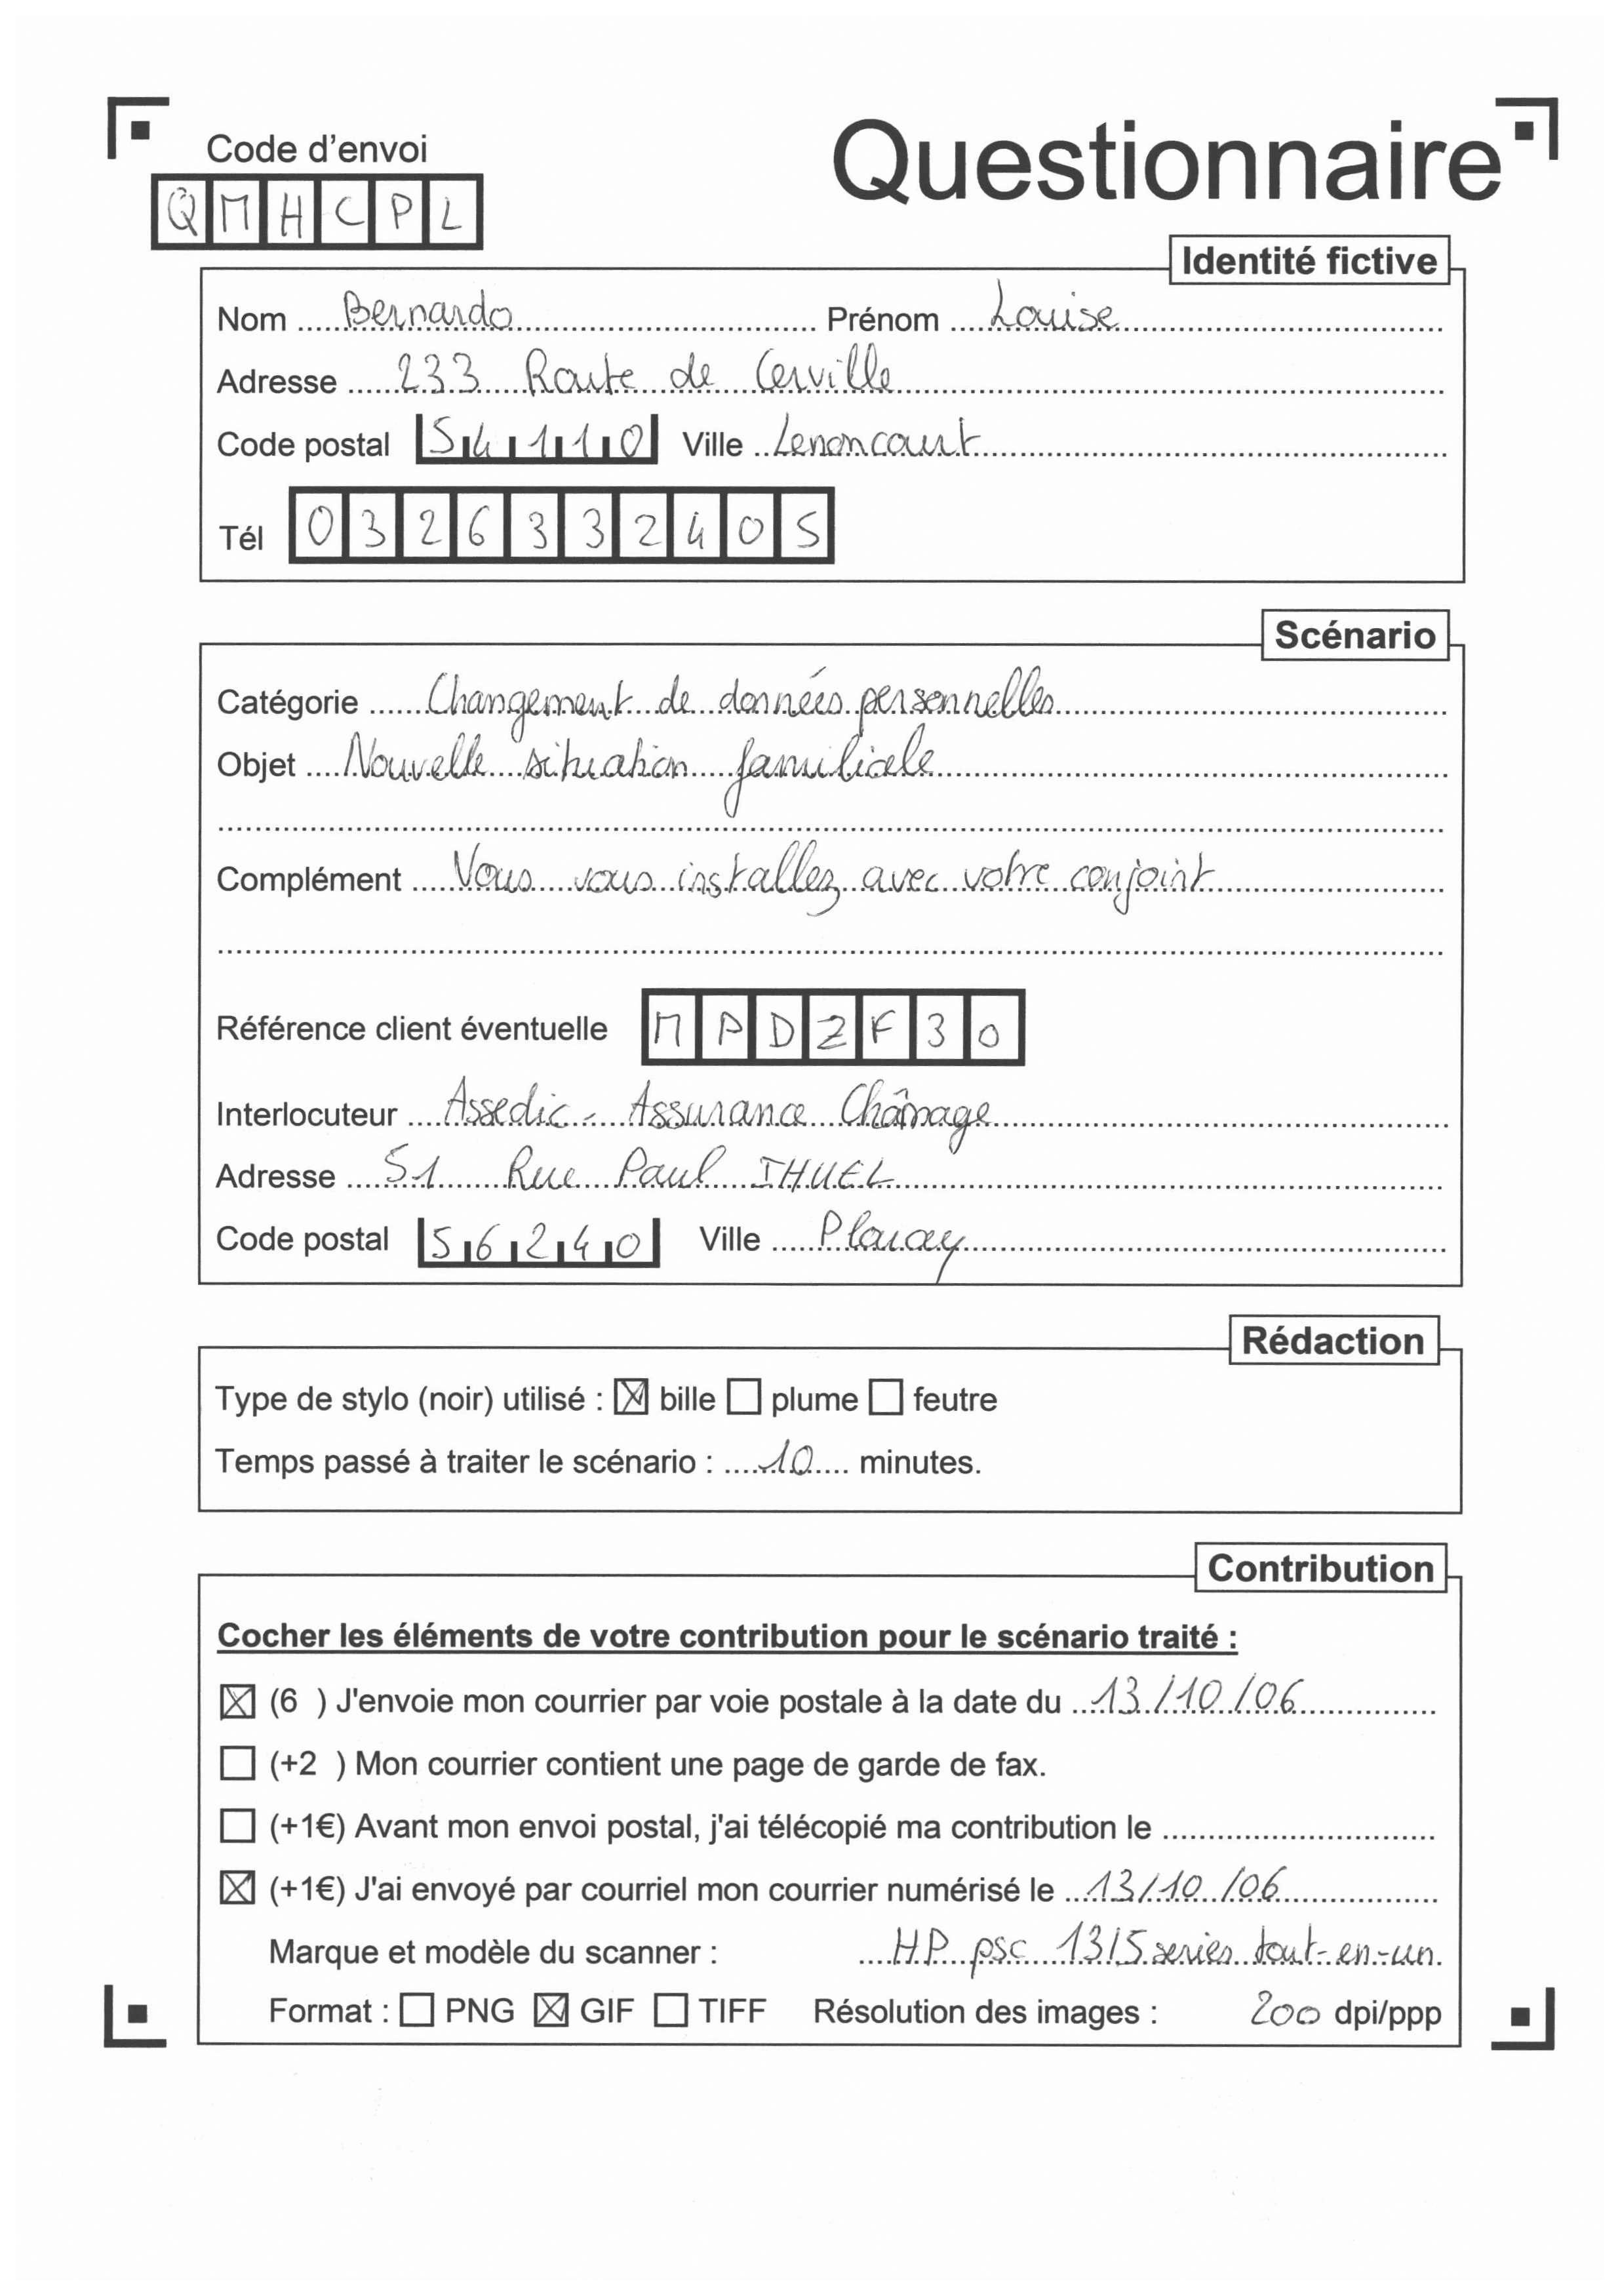 Questionnaire
Code d'envoi
QMHCPL
Identité fictive
Nom Bernardo Prénom Louise
Adresse 233 Route de Cerville
Code postal 54110 Ville Lenoncourt
Tél 0326332405
Scénario
Catégorie Changement de données personnelles
Objet Nouvelle situation familiale
Complément Vous vous installez avec votre conjoint
Référence client éventuelle MPDZF30
Interlocuteur Assedic - Assurance Chômage
Adresse 51 Rue Paul IHUEL
Code postal 56240 Ville Plouay
Rédaction
Type de stylo (noir) utilisé : ☒ bille ☐ plume ☐ feutre
Temps passé à traiter le scénario : 10 minutes.
Contribution
Cocher les éléments de votre contribution pour le scénario traité :
☒ (6 ) J'envoie mon courrier par voie postale à la date du 13/10/06
☐ (+2 ) Mon courrier contient une page de garde de fax.
☐ (+1€) Avant mon envoi postal, j'ai télécopié ma contribution le
☒ (+1€) J'ai envoyé par courriel mon courrier numérisé le 13/10/06
Marque et modèle du scanner : HP psc 1315 series tout-en-un
Format : ☐ PNG ☒ GIF ☐ TIFF Résolution des images : 200 dpi/ppp